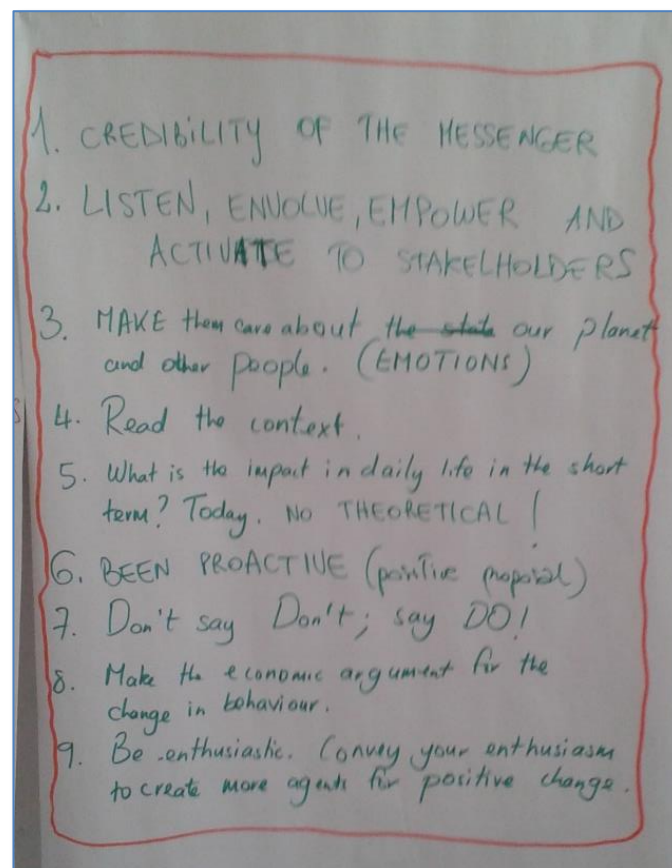 1. CREDIBILITY OF THE MESSENGER
2. LISTEN, ENVOLVE, EMPOWER AND
ACTIVATE TO STAKELHOLDERS
3. MAKE them care about the state our planet
and other people. (EMOTIONS)
4. Read the context.
5. What is the impact in daily life in the short
term? Today. NO THEORETICAL!
6. BEEN PROACTIVE (positive proposal)
7. Don't say Don't; say DO!
8. Make the economic argument for the
change in behaviour.
9. Be enthusiastic. Convey your enthusiasm
to create more agents for positive change.